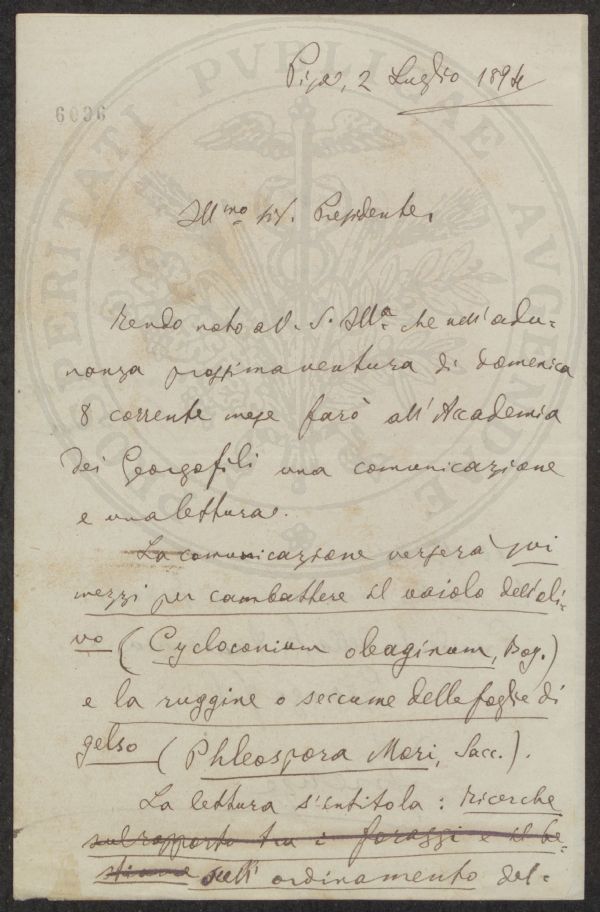 Pisa, 2 Luglio 1894
6096
PROSPERITATI PVBLICAE AVGENDAE
Ill.mo Sig. Presidente,
Rendo noto a V. S. Ill.a che nell'adu-
nanza prossima ventura di domenica
8 corrente mese farò all'Accademia
dei Georgofili una comunicazione
e una lettura.
La comunicazione verserà sui
mezzi per combattere il vaiolo dell'oli-
vo (Cycloconium oleaginum, Boy.)
e la ruggine o seccume delle foglie di
gelso (Phleospora Mori, Sacc.).
La lettura s'intitola: Ricerche
sul rapporto tra i foraggi e il be-
stiame sull'ordinamento del-